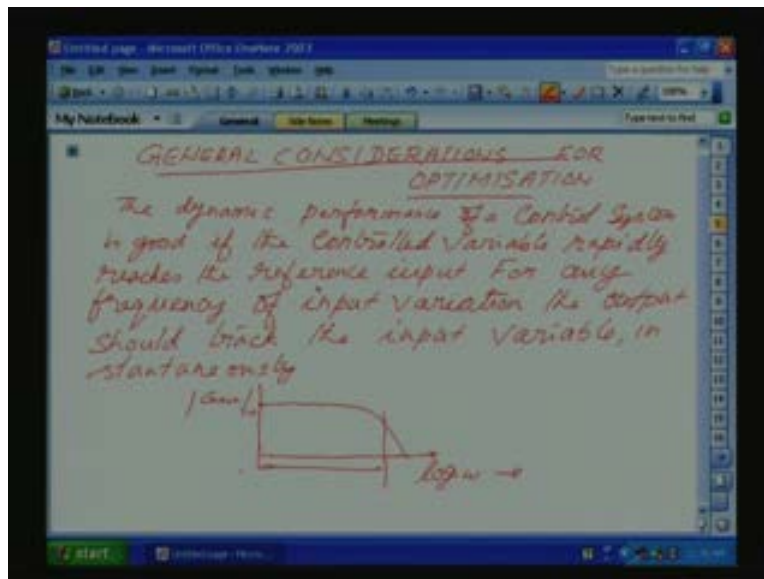 Untitled page - Microsoft Office OneNote 2003
File Edit View Insert Format Tools Window Help
Type a question for help
Back
100%
My Notebook
General
Side Notes
Meetings
Type text to find
GENERAL CONSIDERATIONS FOR
OPTIMISATION
The dynamic performance of a Control System
is good if the Controlled Variable rapidly
reaches the reference input For any
frequency of input variation the output
should track the input variable, in
stantaneously
log ω →
start
Untitled page - Micro...